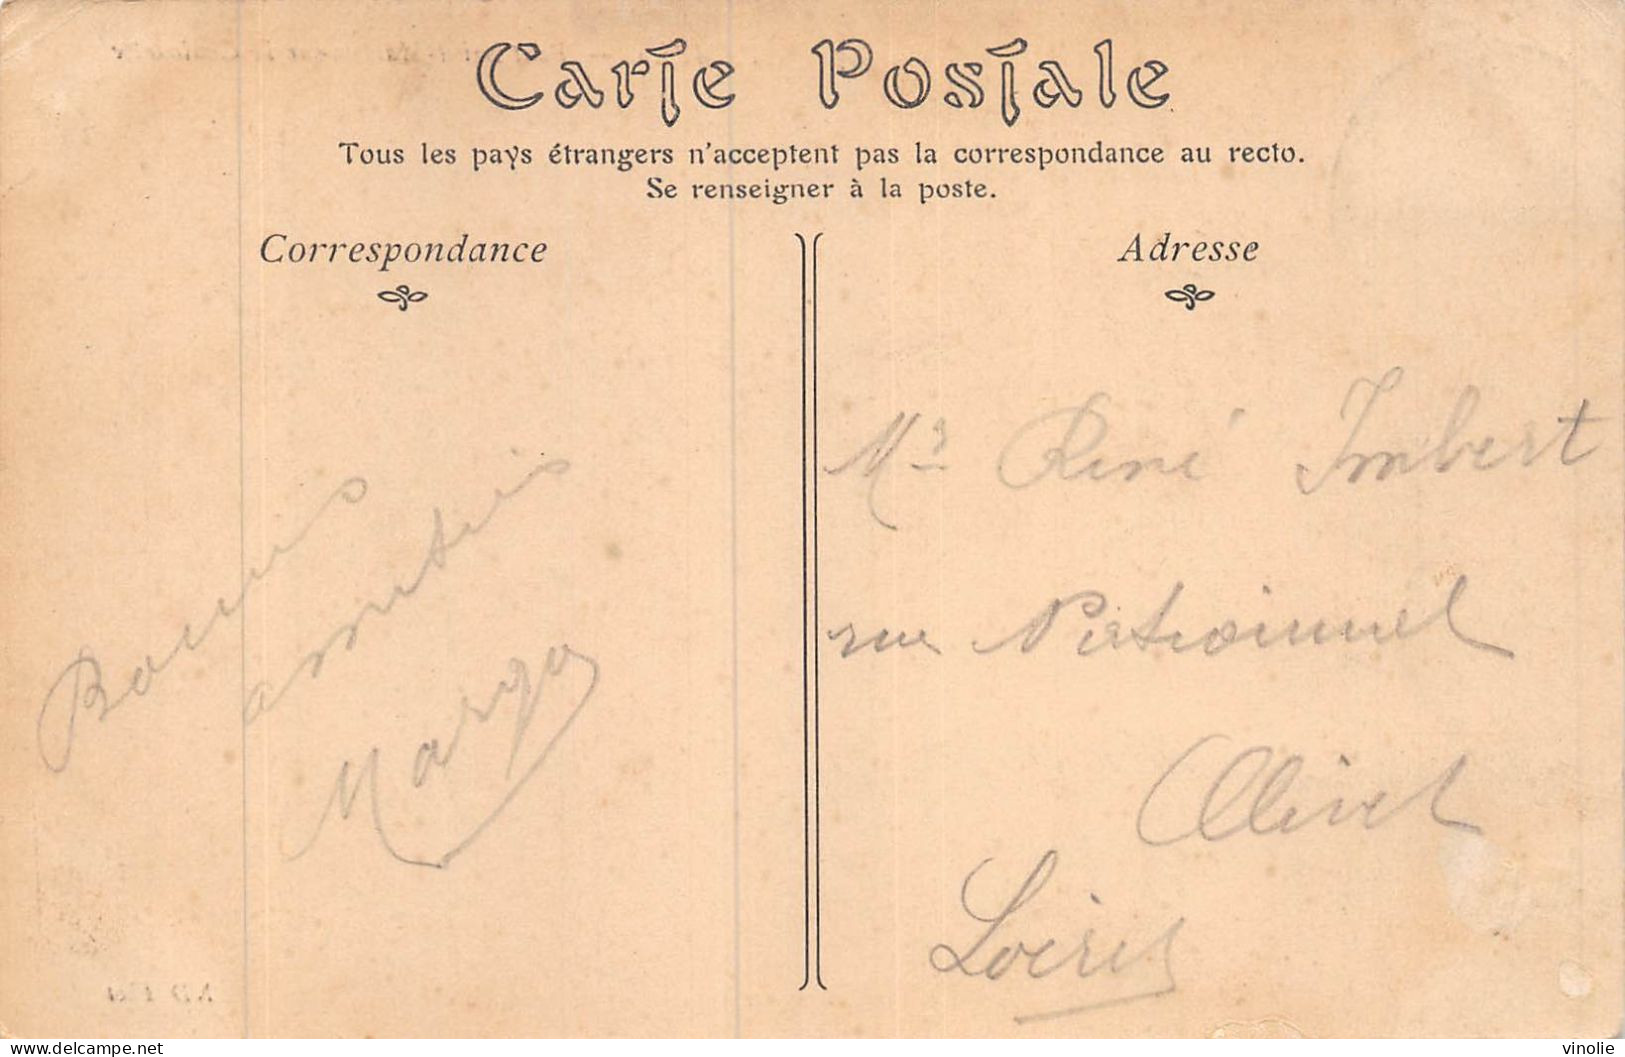 Carte Postale
Tous les pays étrangers n'acceptent pas la correspondance au recto.
Se renseigner à la poste.
Correspondance
Bonnis
amitiés
Margo
Adresse
Mr René Imbert
rue Nationnal
Olivet
Loiret
ND Phot
delcampe.net
vinolie